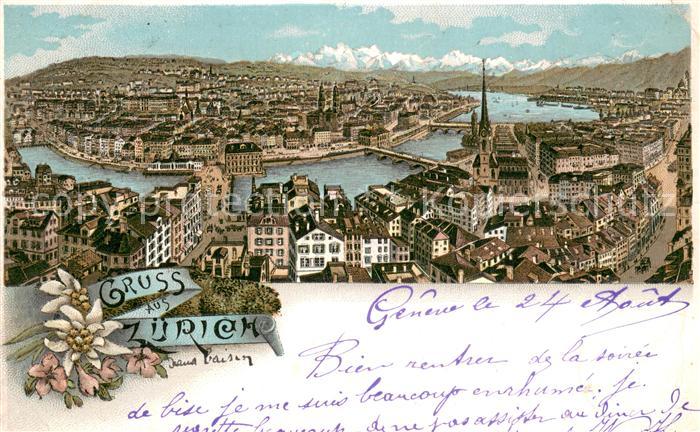 GRUSS
AUS
ZÜRICH
Genève le 24 Août
Bien rentrer de la soirée
de bise je me suis beaucoup enrhumé, je
regrette beaucoup de ne pas assister au diner